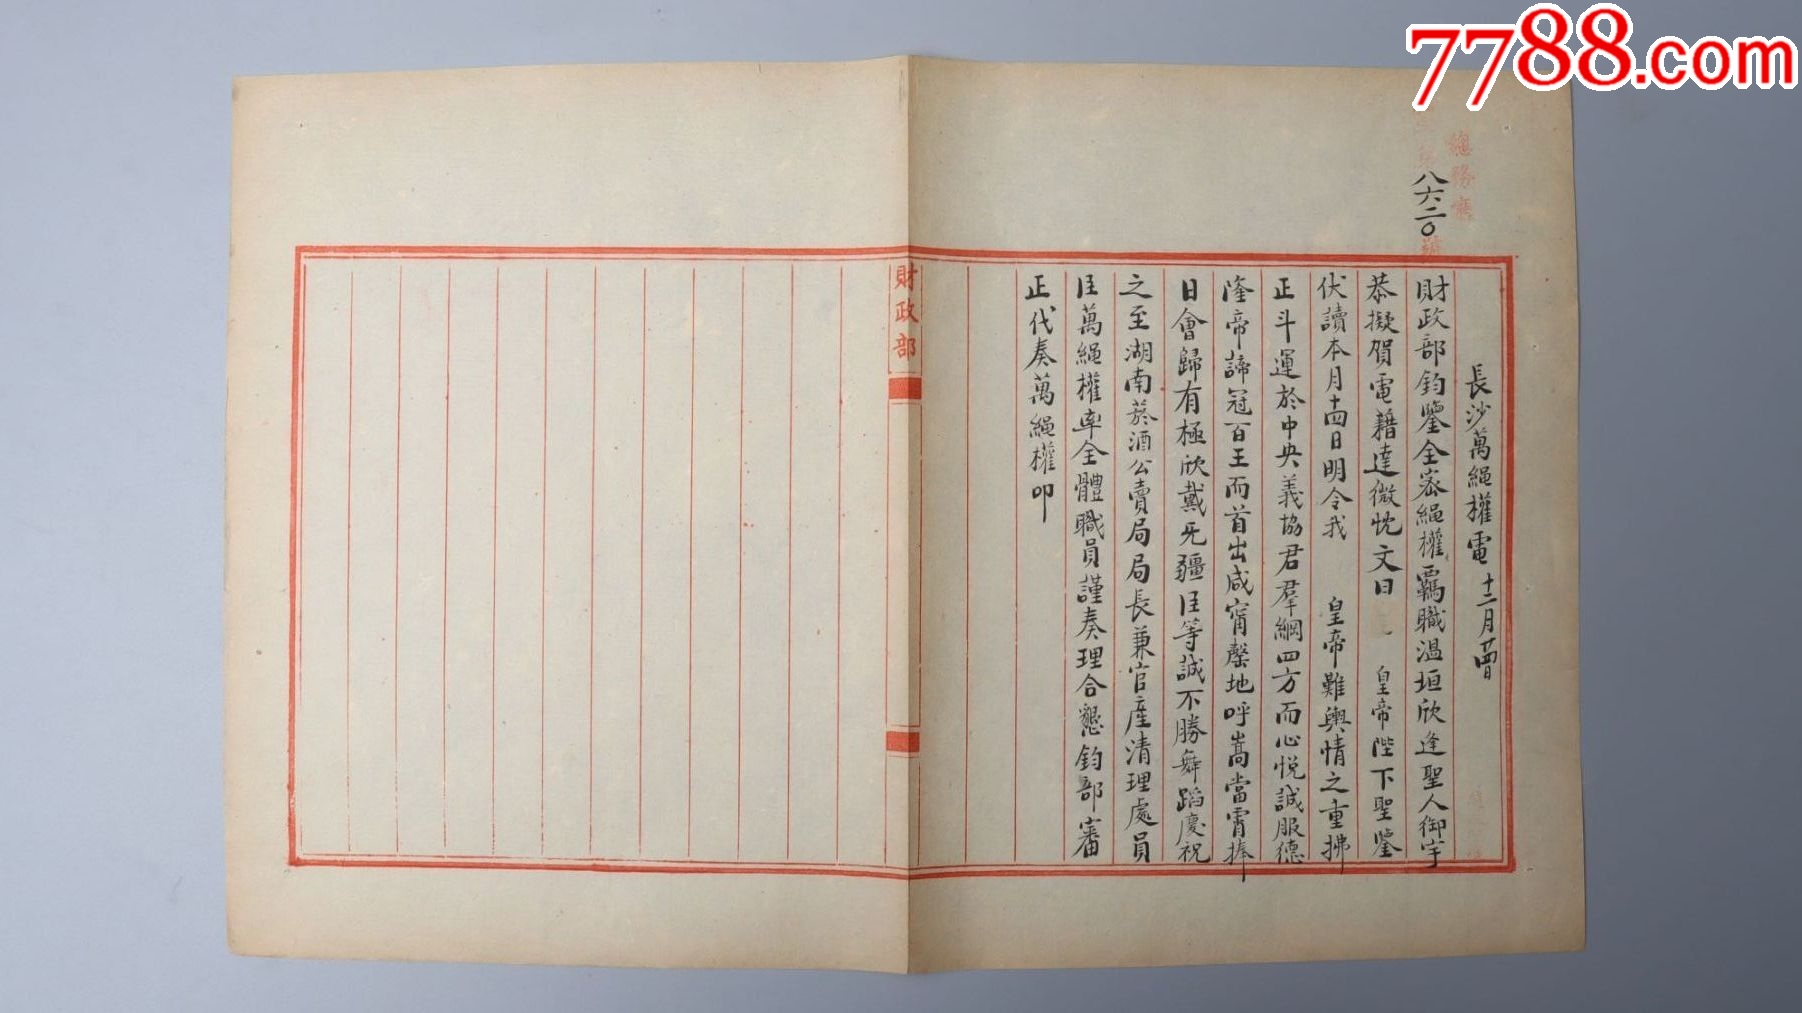 7788.com
總務廳
第八六二〇號
長沙萬繩權電 十二月廿四日
財政部鈞鑒全宻繩權羈職温垣欣逢聖人御宇
恭擬賀電藉達微忱文曰 皇帝陛下聖鑒
伏讀本月十四日明令我 皇帝難輿情之重拂
正斗運於中央義協君羣綱四方而心悦誠服德
隆帝諦冠百王而首出咸甯罄地呼嵩當霄捧
日會歸有極欣戴旡疆臣等誠不勝舞蹈慶祝
之至湖南菸酒公賣局局長兼官産清理處員
臣萬繩權率全體職員謹奏理合懇鈞部審
正代奏萬繩權叩
財政部